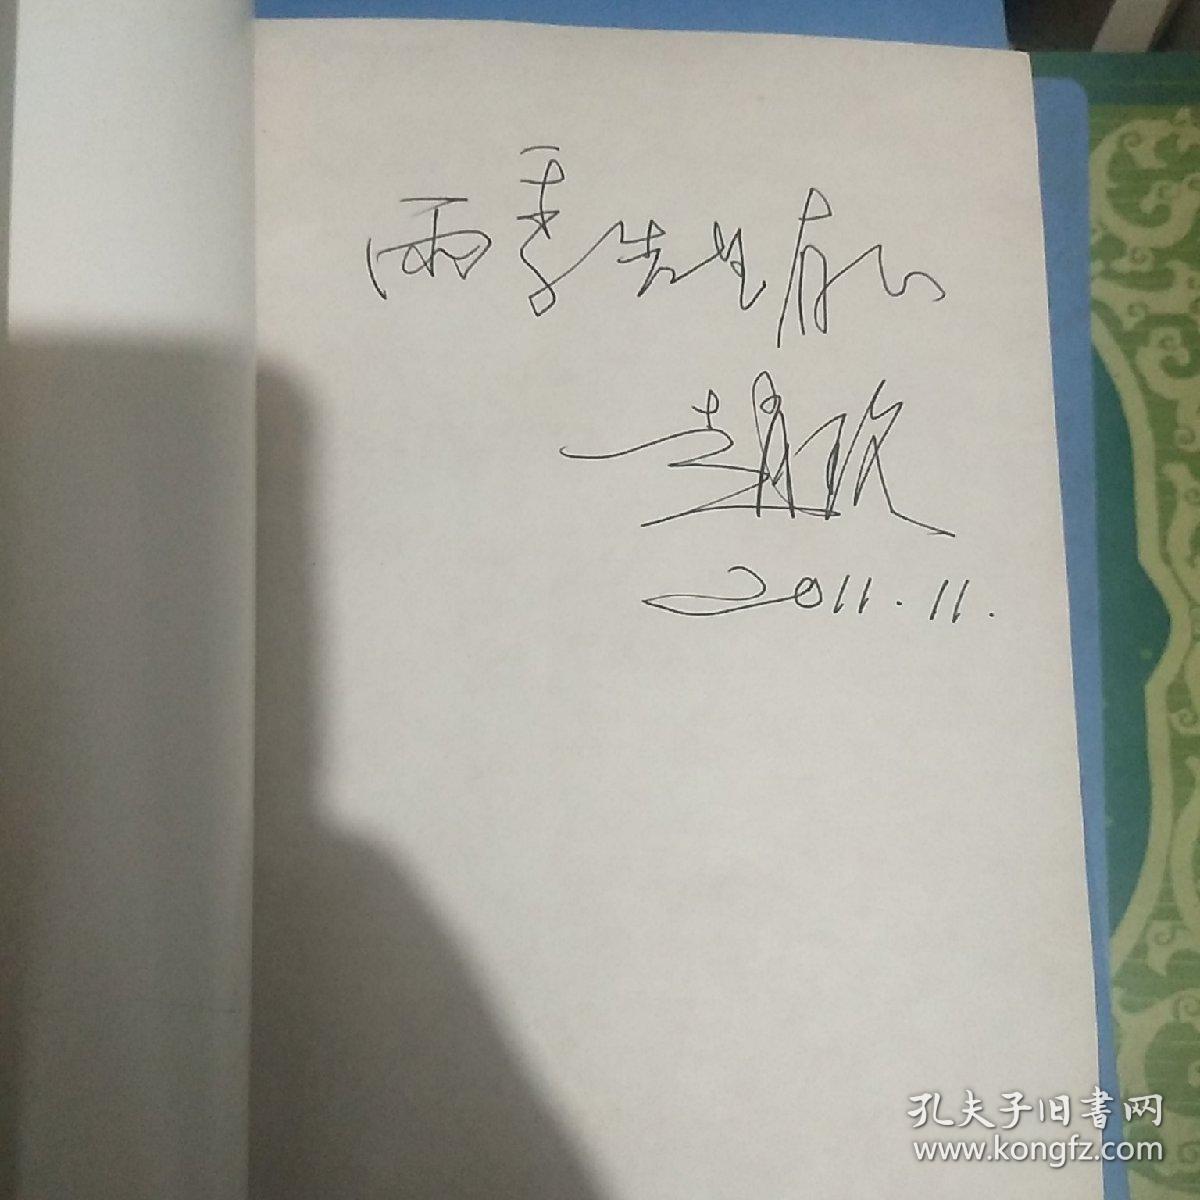 雨季先生存
赵政
2011.11.
孔夫子旧书网
www.kongfz.com